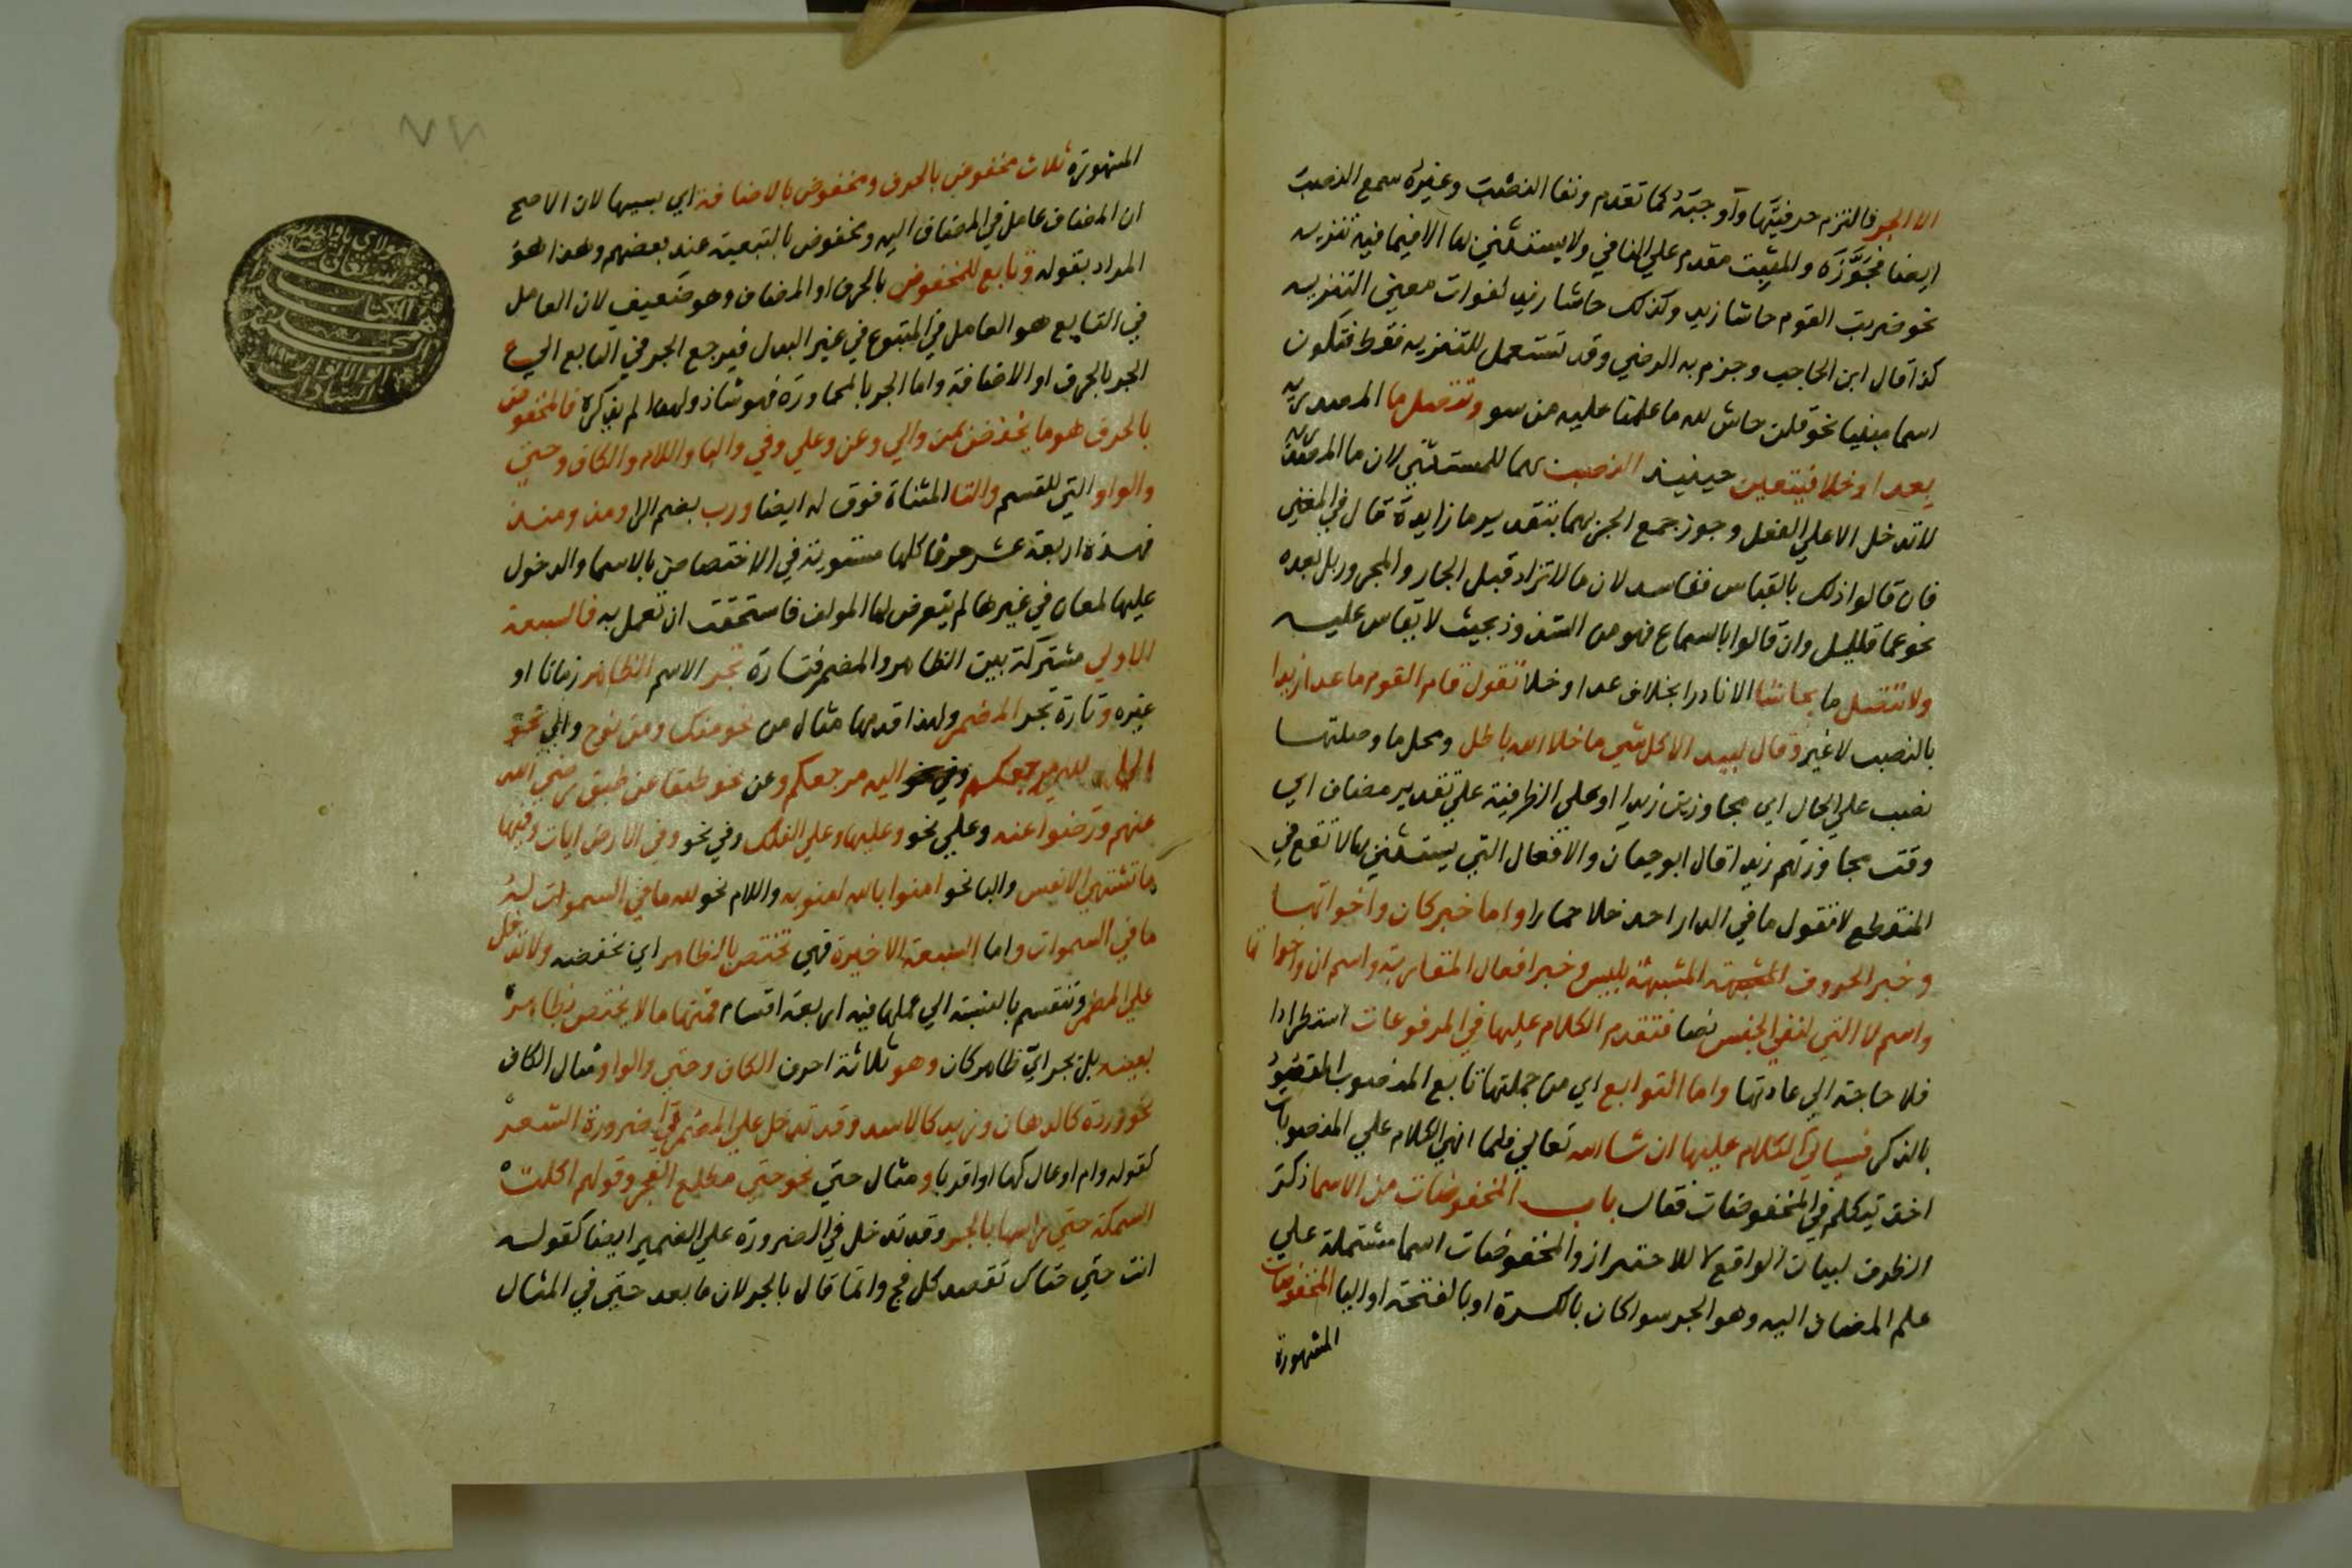 الا الجر فالتزم حرفيتها واوجبته كما تقدم ونفا النصب وغيره سمع النصب
ايضا فجوزه والمثبت مقدم علي النافي ولا يستثني بها الا فيما فيه تنزيه
نحو ضربت القوم حاشا زيد وكذلك حاشا زيد لفوات معني التنزيه
كذا قال ابن الحاجب وجزم به الرضي وقد تستعمل للتنزيه فقط فتكون
اسما مبنيا نحو قلن حاش لله ما علمنا عليه من سو وتتصل ما المصدريه
بعدا وخلا فيتعين حينيذ النصب بهما للمستثني لان ما المصدريه
لا تدخل الا علي الفعل وجوز جمع الجر بهما بتقدير ما زايدة قال في المغني
فان قالوا ذلك بالقياس ففاسد لان ما لا تزاد قبل الجار والمجرور بل بعده
نحو عما قليل وان قالوا بالسماع فهو من الشذوذ بحيث لا يقاس عليه
ولا تتصل ما بحاشا الا نادرا بخلاف عدا وخلا تقول قام القوم ما عدا زيدا
بالنصب لا غير وقال لبيد الا كل شي ما خلا الله باطل ومحل ما وصلتها
نصب علي الحال اي مجاوزين زيدا او علي الظرفية علي تقدير مضاف اي
وقت مجاوزتهم زيدا قال ابو حيان والافعال التي يستثني بها لا تقع في
المنقطع لا تقول ما في الدار احد خلا حمارا واما خبر كان واخواتها
وخبر الحروف المشبهة بليس وخبر افعال المقاربة واسم ان واخواتها
واسم لا التي لنفي الجنس نصا فتقدم الكلام عليها في المرفوعات استطرادا
فلا حاجة الي عادتها واما التوابع اي من جملتها تابع المنصوب المقصود
بالذكر فسياتي الكلام عليها ان شا الله تعالي فلما انهي الكلام علي المنصوبات
اخذ يتكلم في المخفوضات فقال باب المخفوضات من الاسما ذكر
الظرف لبيان الواقع لا للاحتراز والمخفوضات اسما مشتملة علي
علم المضاف اليه وهو الجر سوا كان بالكسرة او بالفتحة او اليا المخفوضات
المشهورة
المشهورة ثلاث مخفوض بالحرف ومخفوض بالاضافة اي بسببها لان الاصح
ان المضاف عامل في المضاف اليه ومخفوض بالتبعية عند بعضهم وهذا هو
المراد بقوله وتابع للمخفوض بالحرف او المضاف وهو ضعيف لان العامل
في التابع هو العامل في المتبوع في غير البدل فيرجع الجر في التابع الي
الجر بالحرف او الاضافة واما الجر بالمجاورة فهو شاذ ولهذا لم يذكره فالمخفوض
بالحرف هو ما يخفض بمن والي وعن وعلي وفي والبا واللام والكاف وحتي
والواو التي للقسم والتا المثناة فوق له ايضا ورب بضم الرا ومذ ومنذ
فهذه اربعة عشر حرفا كلها مستوية في الاختصاص بالاسما والدخول
عليها لمعان في غيرها لم يتعرض لها المولف فاستحقت ان تعمل به فالسبعة
الاولي مشتركة بين الظاهر والمضمر فتارة تجر الاسم الظاهر زمانا او
غيره وتارة تجر المضمر ولهذا قدمها مثال من نحو منك ومن نوح والي نحو
الي الله مرجعكم ونحو اليه مرجعكم وعن نحو طبقا عن طبق رضي الله
عنهم ورضوا عنه وعلي نحو وعليها وعلي الفلك وفي نحو وفي الارض ايات وفيها
ما تشتهي الانفس والبا نحو امنوا بالله امنوا به واللام نحو لله ما في السموات له
ما في السموات واما السبعة الاخيرة فهي تختص بالظاهر اي بخفضه ولا تدخل
علي المضمر وتنقسم بالنسبة الي عملها فيه اربعة اقسام فمنها ما لا يختص بظاهر
بعينه بل يجر اي ظاهر كان وهو ثلاثة احرف الكاف وحتي والواو مثال الكاف
نحو وردة كالدهان وزيد كالاسد وقد تدخل علي المضمر في ضرورة الشعر
كقوله وام اوعال كها او اقربا ومثال حتي نحو حتي مطلع الفجر وقولهم اكلت
السمكة حتي راسها بالجر وقد تدخل في الضرورة علي الضمير ايضا كقوله
اتت حتاك تقصد كل فج وانما قال بالجر لان ما بعد حتي في المثال